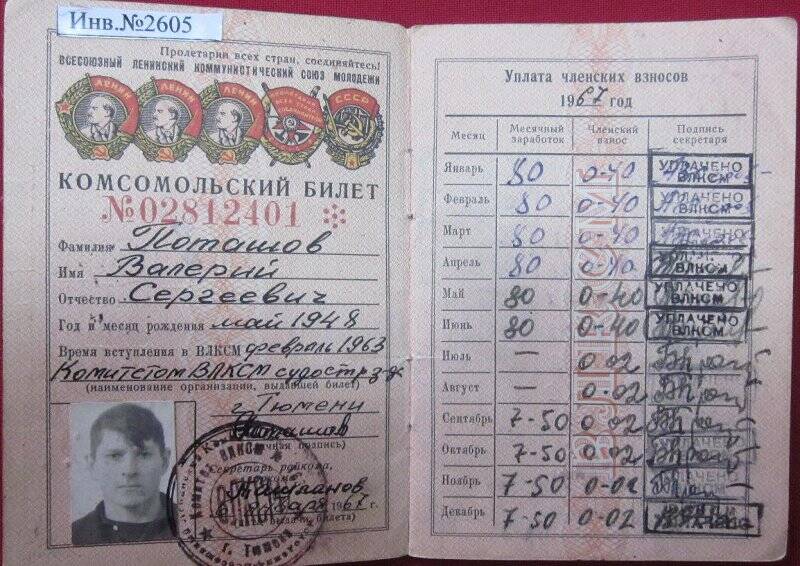 Инв.№2605
Пролетарии всех стран, соединяйтесь!
ВСЕСОЮЗНЫЙ ЛЕНИНСКИЙ КОММУНИСТИЧЕСКИЙ СОЮЗ МОЛОДЕЖИ
ЛЕНИН ЛЕНИН ЛЕНИН СССР
КОМСОМОЛЬСКИЙ БИЛЕТ
№02812401
Фамилия Поташов
Имя Валерий
Отчество Сергеевич
Год и месяц рождения май 1948
Время вступления в ВЛКСМ февраль 1963
Комитетом ВЛКСМ
(наименование организации, выдавшей билет)
г. Тюмени
Поташов
(личная подпись)
Секретарь райкома,
января 1967 г.
г. Тюмень
Уплата членских взносов
1967 год
Месяц Месячный заработок Членский взнос Подпись секретаря
Январь 80 0-40 УПЛАЧЕНО ВЛКСМ
Февраль 80 0-40 УПЛАЧЕНО ВЛКСМ
Март 80 0-40 УПЛАЧЕНО ВЛКСМ
Апрель 80 0-40 ВЛКСМ
Май 80 0-40 УПЛАЧЕНО ВЛКСМ
Июнь 80 0-40 УПЛАЧЕНО ВЛКСМ
Июль — 0-02
Август — 0-02
Сентябрь 7-50 0-02
Октябрь 7-50 0-02
Ноябрь 7-50 0-02
Декабрь 7-50 0-02